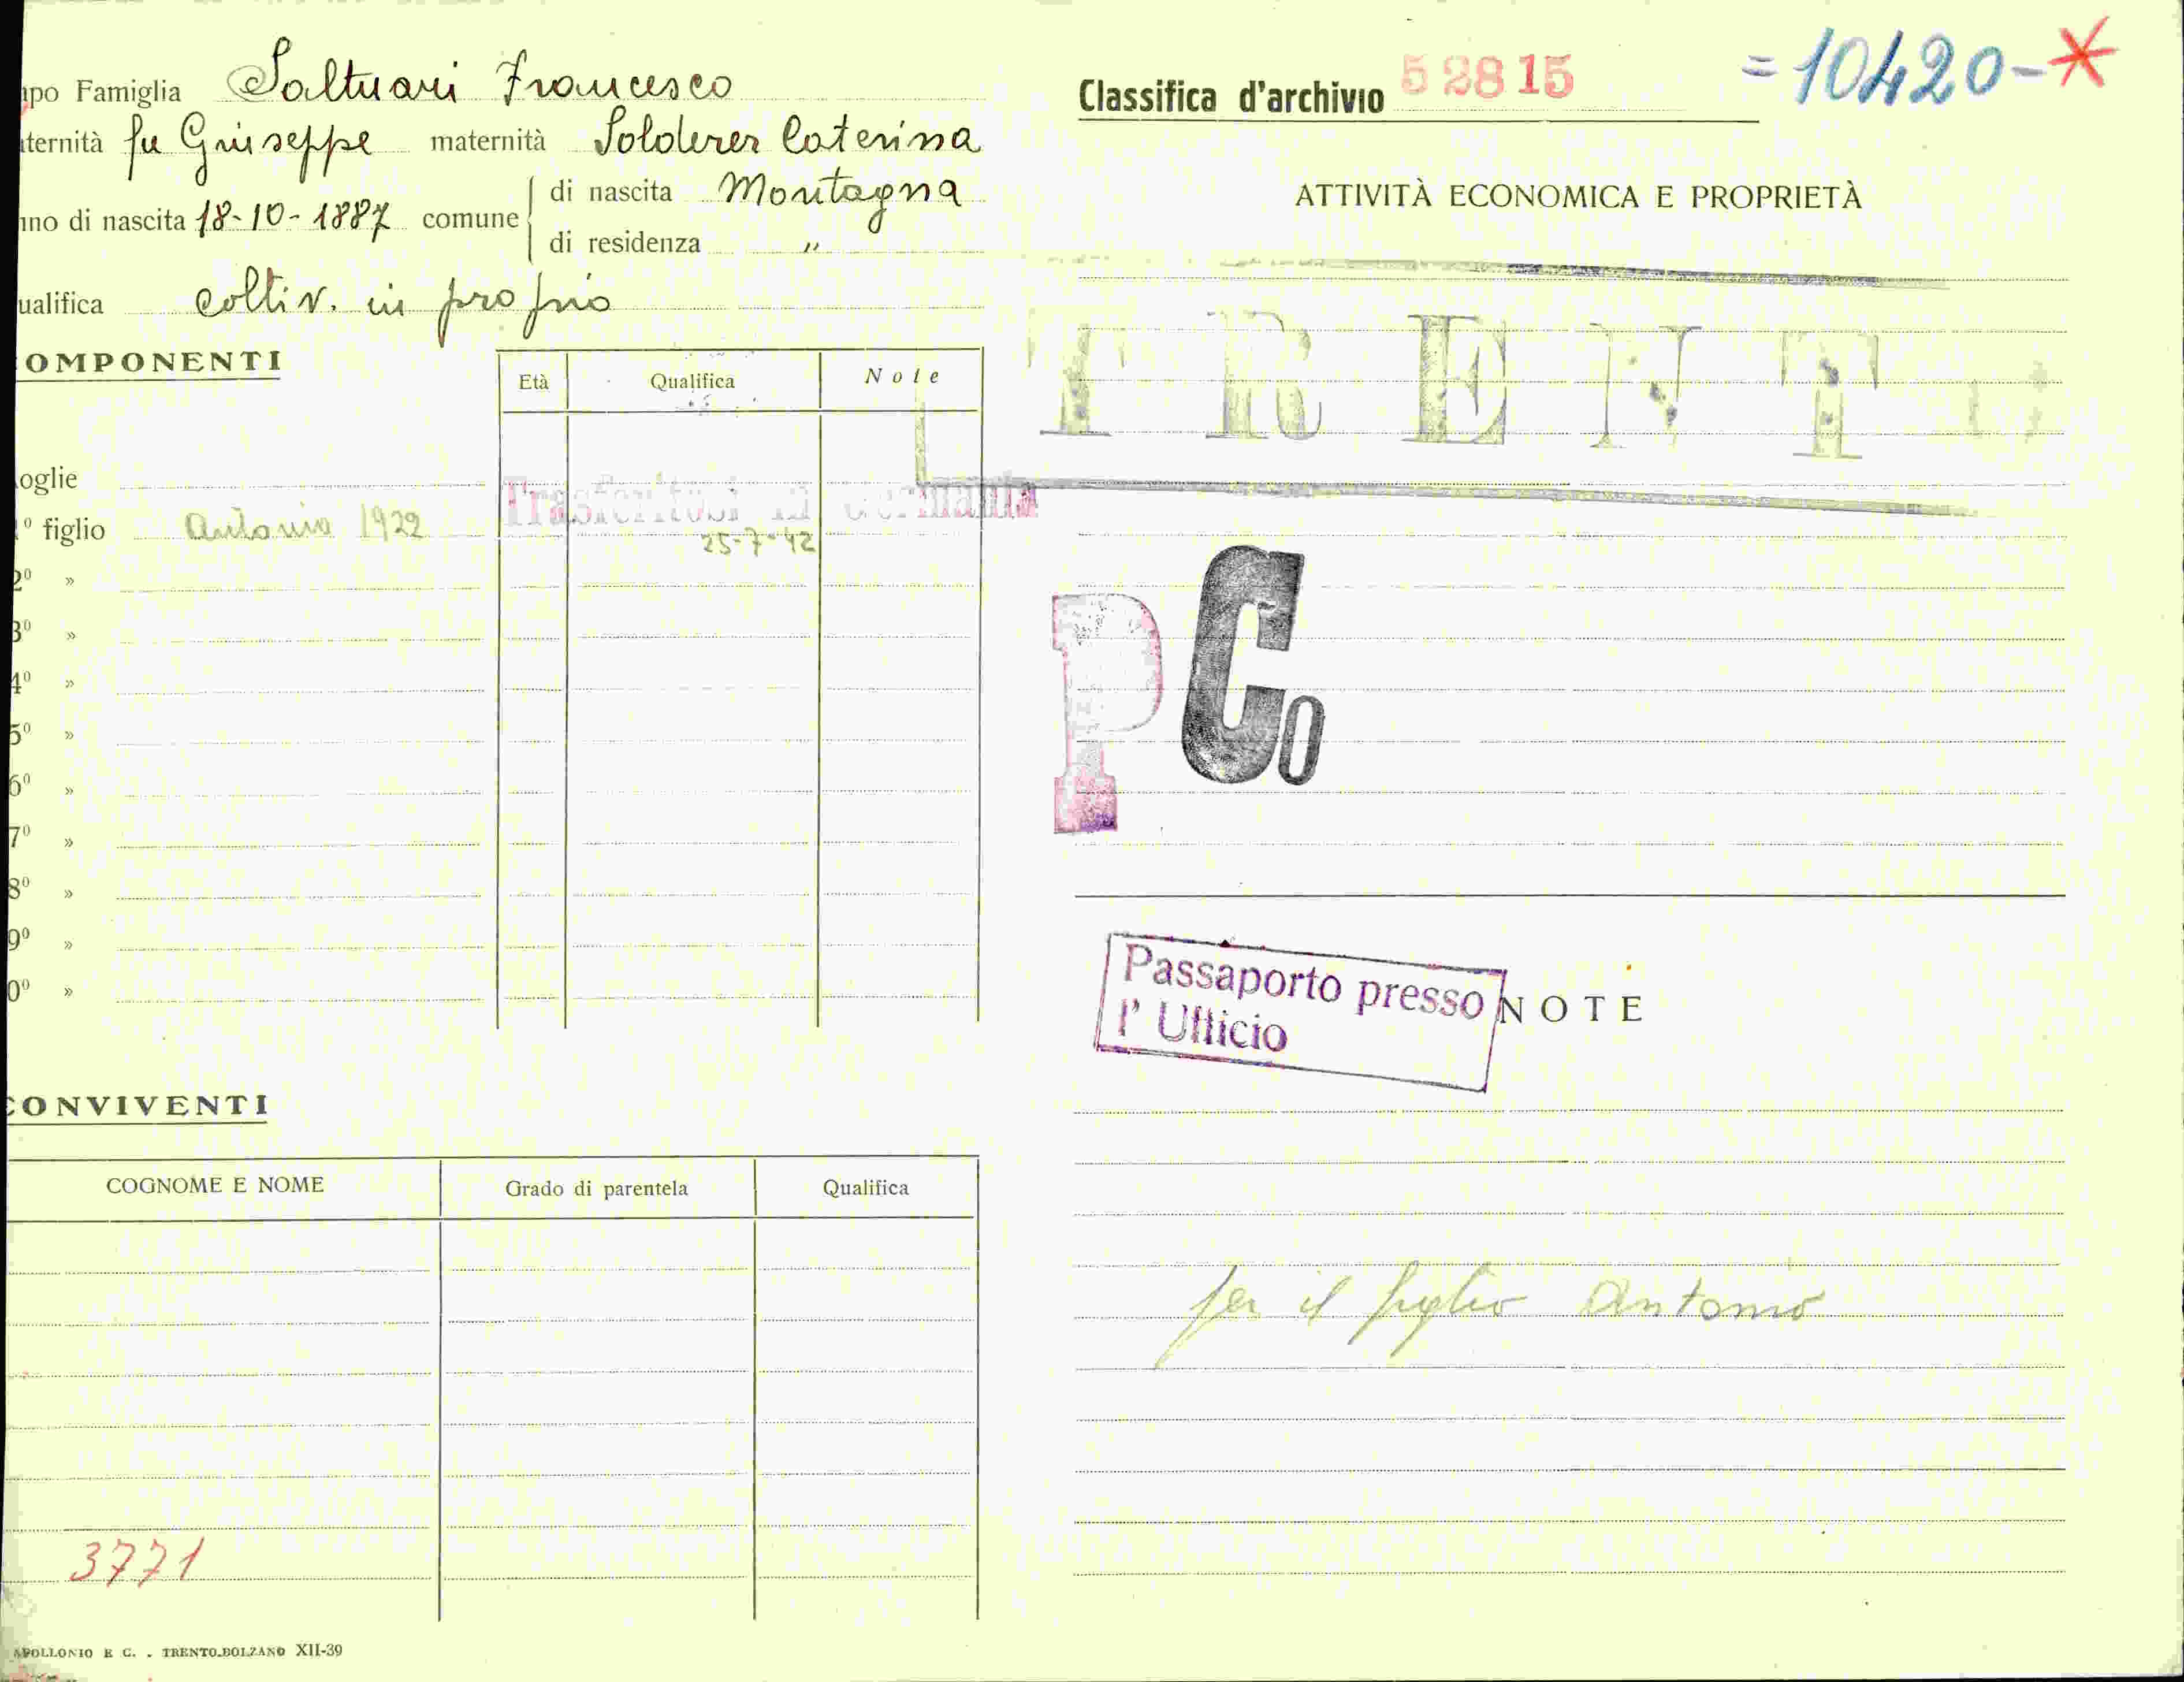 apo Famiglia Saltuari Francesco
aternità fu Giuseppe maternità Solderer Caterina
nno di nascita 18-10-1887 comune di nascita Montagna
di residenza "
ualifica coltiv. in proprio
OMPONENTI
Età Qualifica Note
oglie
Trasferitosi in Germania
1º figlio Antonio 1922 25-7-42
2º »
3º »
4º »
5º »
6º »
7º »
8º »
9º »
0º »
CONVIVENTI
COGNOME E NOME Grado di parentela Qualifica
3771
APOLLONIO E C. - TRENTO-BOLZANO XII-39
Classifica d'archivio 52815 =10420-*
ATTIVITÀ ECONOMICA E PROPRIETÀ
TRENTO
P Co
Passaporto presso
l' Ufficio
NOTE
per il figlio Antonio